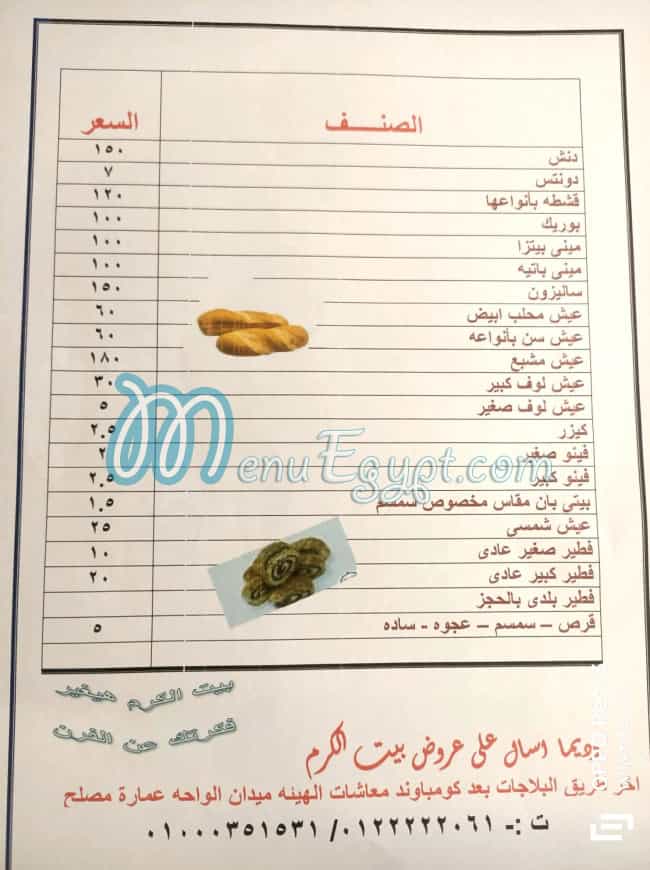 الصنــــف السعر
دنش ١٥٠
دونتس ٧
قشطه بأنواعها ١٢٠
بوريك ١٠٠
مينى بيتزا ١٠٠
مينى باتيه ١٠٠
ساليزون ١٥٠
عيش محلب ابيض ٦٠
عيش سن بأنواعه ٦٠
عيش مشبع ١٨٠
عيش لوف كبير ٣٠
عيش لوف صغير ٥
كيزر ٢.٥
فينو صغير ٢
فينو كبير ٢.٥
بيتى بان مقاس مخصوص سمسم ١.٥
عيش شمسى ٢٥
فطير صغير عادى ١٠
فطير كبير عادى ٢٠
فطير بلدى بالحجز
قرص – سمسم – عجوه - ساده ٥
MenuEgypt.com
بيت الكرم هيغير
فكرتك عن الفرن
ديما اسال على عروض بيت الكرم
اخر طريق البلاجات بعد كومباوند معاشات الهيئه ميدان الواحه عمارة مصلح
ت :- ٠١٢٢٢٢٢٠٦١ / ٠١٠٠٠٣٥١٥٣١